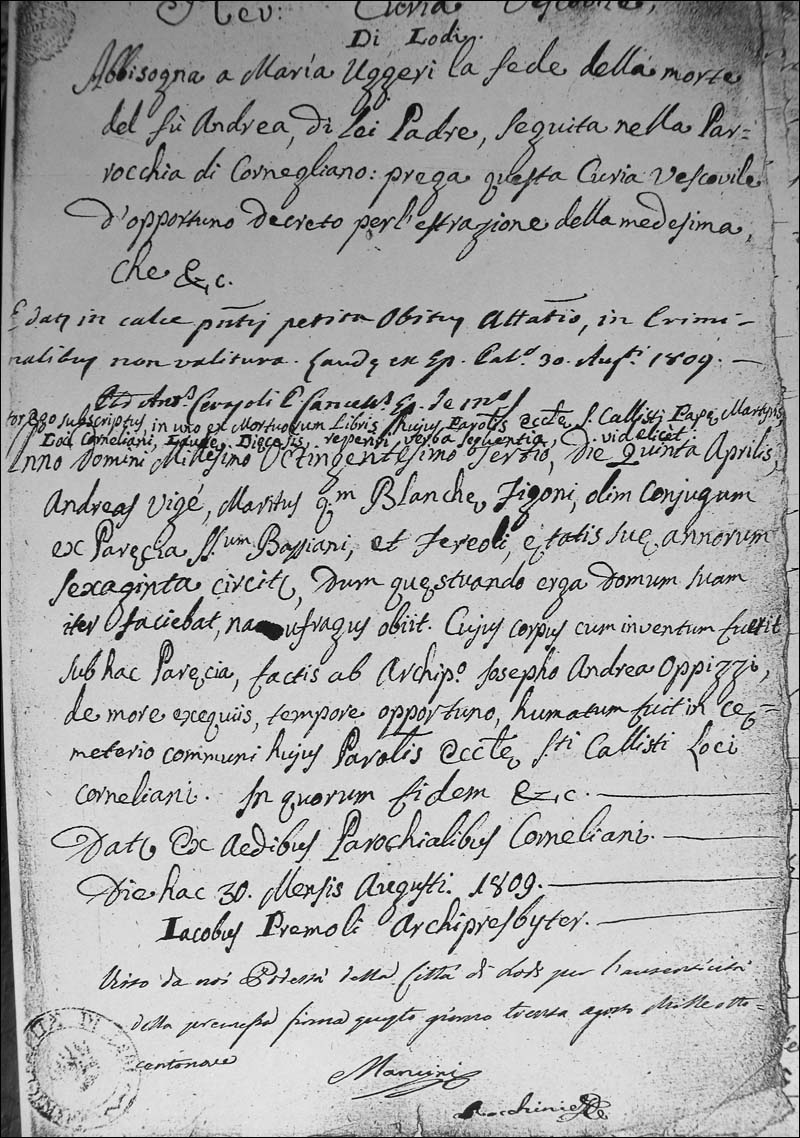 Rev: Curia Vescovile,
Di Lodi.
Abbisogna a Maria Uggeri la fede della morte
del fù Andrea, di lei Padre, seguita nella Par=
rocchia di Cornegliano: prega questa Curia Vescovile
d'opportuno decreto per l'estrazione della medesima,
che &c.
in calce petita Obitus in Crimi-
nalibus non valitura. Ep. 30. Augti 1809.
Ego subscriptus, in uno ex Mortuorum Libris hujus Parolis Eccle S. Callisti Papę Martyris,
Loci Corneliani, Laude Diecesis reperiri verba sequentia, videlicet
Anno Domini Millesimo Octingentesimo Tertio, Die Quinta Aprilis,
Andreas Vigé, Maritus qm Blanche Figoni, olim Conjugum
ex Paręcia SS.um Bassiani, et Fereoli, ętatis suę annorum
sexaginta circit, dum quęstuando erga Domum suam
iter faciebat, naufragus obiit. Cujus corpus cum inventum fuerit
sub hac Paręcia, factis ab Archipo Josepho Andrea Oppizzi,
de more exequiis, tempore opportuno, humatum fuit in cę=
meterio communi hujus Parolis Eccle S.ti Callisti Loci
Corneliani. In quorum fidem &c.
Dat Ex Aedibus Parochialibus Corneliani.
Die hac 30. Mensis Augusti. 1809.
Iacobus Premoli Archipresbyter.
Visto da noi Podestà della Città di Lodi per l'autenticità
della premessa firma questo giorno trenta agosto Mille otto-
centonove
Mancini